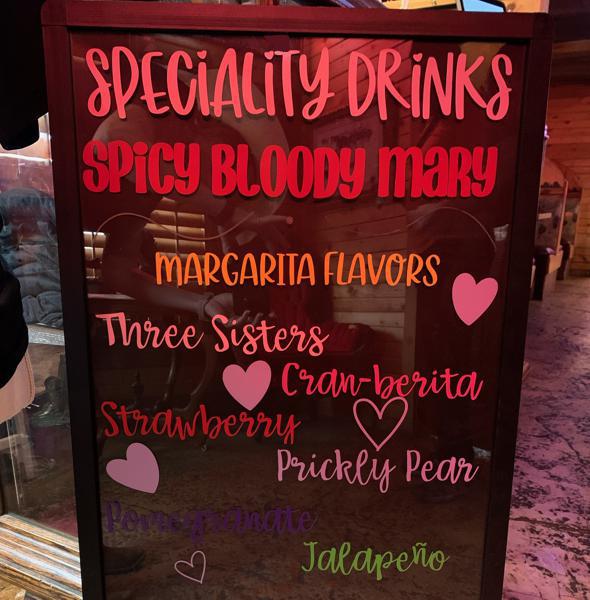 SPECIALITY DRINKS
SPICY BLOODY MARY
MARGARITA FLAVORS
Three Sisters
Cran-berita
Strawberry
Prickly Pear
Pomegranate
Jalapeño